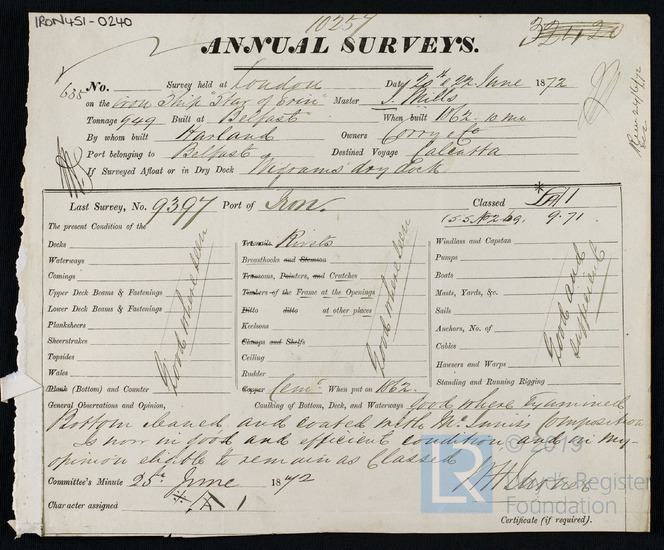 IRON451-0240
10257
ANNUAL SURVEYS.
635 No. Survey held at London Date 20th & 22 June 1872
on the iron Ship "Star of Erin" Master J. Mills
Tonnage 949 Built at Belfast When built 1862. 10 mo
By whom built Harland Owners Corry & Co
Port belonging to Belfast Destined Voyage Calcutta
If Surveyed Afloat or in Dry Dock Wigrams dry dock
Last Survey, No. 9397 Port of Iron. Classed A1
(S.S. No 2 Lon 9.71
The present Condition of the
Decks
Waterways
Comings
Upper Deck Beams & Fastenings
Lower Deck Beams & Fastenings
Planksheers
Sheerstrakes
Topsides
Wales
Plank (Bottom) and Counter
Good where seen
Treenails Rivets
Breasthooks and Stemson
Transoms, Pointers, and Crutches
Timbers of the Frame at the Openings
Ditto ditto at other places
Keelsons
Clamps and Shelfs
Ceiling
Rudder
Copper Cemt When put on 1862.
Good where seen
Windlass and Capstan
Pumps
Boats
Masts, Yards, &c.
Sails
Anchors, No. of
Cables
Hawsers and Warps
Standing and Running Rigging
Good and sufficient
General Observations and Opinion, Caulking of Bottom, Deck, and Waterways good where examined
Bottom cleaned and coated with Mc Innis's Composition
Is now in good and efficient condition and in my
opinion eligible to remain as Classed
Committee's Minute 25th June 1872
Character assigned A1
Certificate (if required).
© 2019
LR
Lloyd's Register
Foundation